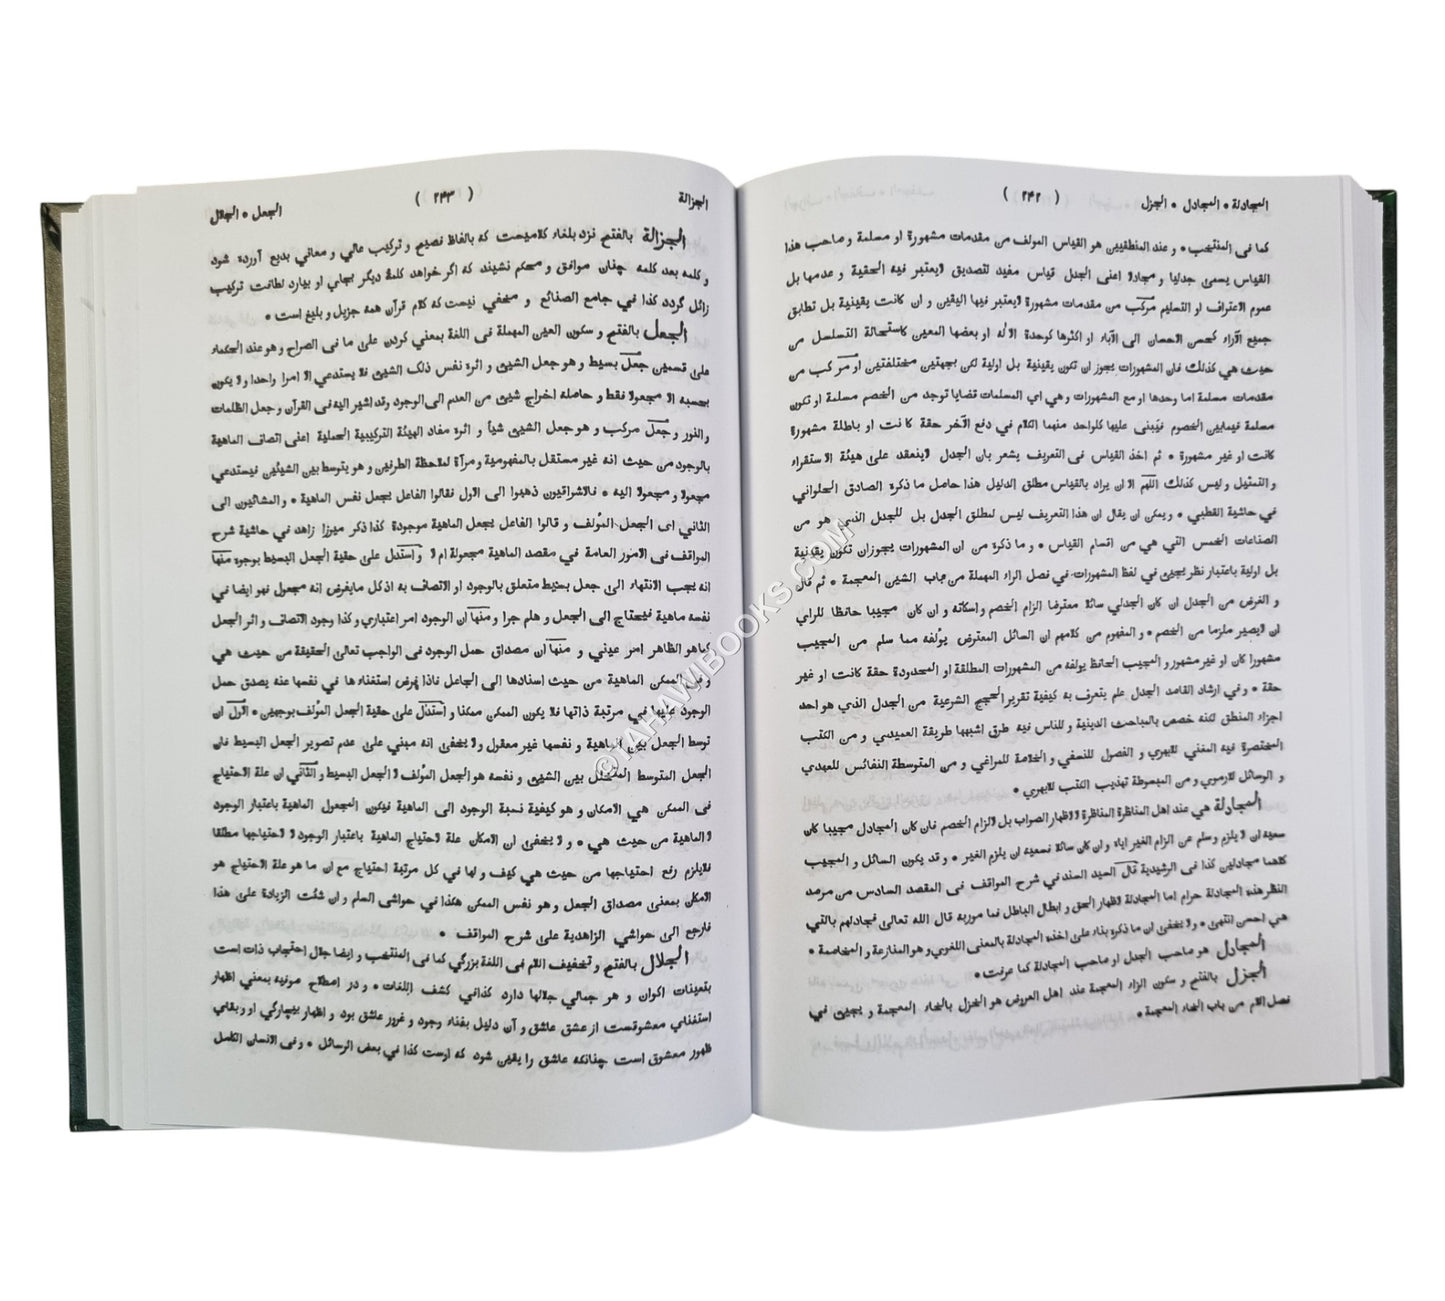 المجادلة * المجادل * الجزل
( ٢٤٢ )
كما فى المنتخب * و عند المنطقيين هو القياس المولف من مقدمات مشهورة او مسلمة و صاحب هذا
القياس يسمى جدليا و مجادلا اعنى الجدل قياس مفيد لتصديق لايعتبر فيه الحقية و عدمها بل
عموم الاعتراف او التسليم مركب من مقدمات مشهورة لايعتبر فيها اليقين و ان كانت يقينية بل تطابق
جميع الآراء كحسن الاحسان الى الآباء او اكثرها كوحدة الاله او بعضها المعين كاستحالة التسلسل من
حيث هي كذلك فان المشهورات يجوز ان تكون يقينية بل اولية لكن بجهتين مختلفتين او مركب من
مقدمات مسلمة اما وحدها او مع المشهورات و هي اي المسلمات قضايا توجد من الخصم مسلمة او تكون
مسلمة فيمابين الخصوم فيبنى عليها كلواحد منهما الكلام في دفع الآخر حقة كانت او باطلة مشهورة
كانت او غير مشهورة * ثم اخذ القياس فى التعريف يشعر بان الجدل لاينعقد على هيئة الاستقراء
و التمثيل و ليس كذلك اللهم الا ان يراد بالقياس مطلق الدليل هذا حاصل ما ذكرة الصادق الحلواني
في حاشية القطبي * و يمكن ان يقال ان هذا التعريف ليس لمطلق الجدل بل للجدل الذي هو من
الصناعات الخمس التي هي من اقسام القياس * و ما ذكرة من ان المشهورات يجوزان تكون يقينية
بل اولية باعتبار نظر يجيئ في لفظ المشهورات في فصل الراء المهملة من باب الشين المعجمة * ثم قال
و الغرض من الجدل ان كان الجدلي سائلا معترضا الزام الخصم و اسكاته و ان كان مجيبا حافظا للراي
ان لايصير ملزما من الخصم * و المفهوم من كلامهم ان السائل المعترض يولفه مما سلم من المجيب
مشهورا كان او غير مشهور و المجيب الحافظ يولفه من المشهورات المطلقة او المحدودة حقة كانت او غير
حقة * و في ارشاد القاصد الجدل علم يتعرف به كيفية تقرير الحجج الشرعية من الجدل الذي هو احد
اجزاء المنطق لكنه خصص بالمباحث الدينية و للناس فيه طرق اشبهها طريقة العميدي و من الكتب
المختصرة فيه المغني للابهري و الفصول للنسفي و الخلاصة للمراغي و من المتوسطة النفائس للعهدي
و الوسائل للارموي و من المبسوطة تهذيب الكتب للابهري *
المجادلة هي عند اهل المناظرة المناظرة لا لاظهار الصواب بل لالزام الخصم فان كان المجادل مجيبا كان
سعيه ان لايلزم و سلم عن الزام الغير اياه و ان كان سائلا فسعيه ان يلزم الغير * و قد يكون السائل و المجيب
كلاهما مجادلين كذا في الرشيدية قال السيد السند في شرح المواقف فى المقصد السادس من مرصد
النظر هذه المجادلة حرام اما المجادلة لاظهار الحق و ابطال الباطل فما مور به قال الله تعالى فجادلهم بالتي
هي احسن انتهى * و لايخفى ان ما ذكره بناء على اخذه المجادلة بالمعنى اللغوي و هو المنازعة و المخاصمة *
المجادل هو صاحب الجدل او صاحب المجادلة كما عرفت *
الجزل بالفتح و سكون الزاء المعجمة عند اهل العروض هو الخزل بالخاء المعجمة و يجيئ في
فصل اللام من باب الخاء المعجمة *
الجزالة
( ٢٤٣ )
الجعل * الجلال
الجزالة بالفتح نزد بلغاء كلاميست كه بالفاظ فصيح و تركيب عالي و معاني بديع آورده شود
و كلمه بعد كلمه چنان موافق و محكم نشيند كه اگر خواهد كلمهٔ ديگر بجاي او بيارد لطافت تركيب
زائل گردد كذا في جامع الصنائع و مخفي نيست كه كلام قرآن همه جزيل و بليغ است *
الجعل بالفتح و سكون العين المهملة فى اللغة بمعني كردن على ما فى الصراح و هو عند الحكماء
على قسمين جعل بسيط و هو جعل الشيئ و اثره نفس ذلك الشيئ فلا يستدعي الا امرا واحدا و لا يكون
بحسبه الا مجعولا فقط و حاصله اخراج شيئ من العدم الى الوجود وقد اشير اليه فى القرآن و جعل الظلمات
والنور و جعل مركب و هو جعل الشيئ شيأ و اثره مفاد الهيئة التركيبية الحملية اعنى اتصاف الماهية
بالوجود من حيث انه غير مستقل بالمفهومية و مرآة لملاحظة الطرفين و هو يتوسط بين الشيئين فيستدعي
مجعولا و مجعولا اليه * فالاشراقيون ذهبوا الى الاول فقالوا الفاعل يجعل نفس الماهية * و المشائيون الى
الثاني اى الجعل المؤلف و قالوا الفاعل يجعل الماهية موجودة كذا ذكر ميرزا زاهد في حاشية شرح
المواقف فى الامور العامة في مقصد الماهية مجعولة ام لا و استدل على حقية الجعل البسيط بوجوه منها
انه يجب الانتهاء الى جعل بسيط متعلق بالوجود او الاتصاف به اذ كل مايفرض انه مجعول فهو ايضا في
نفسه ماهية فيحتاج الى الجعل و هلم جرا و منها ان الوجود امر اعتباري و كذا وجود الاتصاف و اثر الجعل
كماهو الظاهر امر عيني و منها ان مصداق حمل الوجود فى الواجب تعالى الحقيقة من حيث هي
و في الممكن الماهية من حيث اسنادها الى الجاعل فاذا فرض استغناءها في نفسها عنه يصدق حمل
الوجود عليها في مرتبة ذاتها فلا يكون الممكن ممكنا و استدل على حقية الجعل المؤلف بوجهين * الاول ان
توسط الجعل بين الماهية و نفسها غير معقول و لايخفى انه مبني على عدم تصوير الجعل البسيط فان
الجعل المتوسط المتخلل بين الشيئ و نفسه هو الجعل المؤلف لا الجعل البسيط و الثاني ان علة الاحتياج
فى الممكن هي الامكان و هو كيفية نسبة الوجود الى الماهية فيكون المجعول الماهية باعتبار الوجود
لا الماهية من حيث هي * و لا يخفى ان الامكان علة لاحتياج الماهية باعتبار الوجود لا لاحتياجها مطلقا
فلايلزم رفع احتياجها من حيث هي كيف و لها في كل مرتبة احتياج مع ان ما هو علة الاحتياج هو
الامكان بمعنى مصداق الجعل و هو نفس الممكن هكذا في حواشى السلم و ان شئت الزيادة على هذا
فارجع الى حواشي الزاهدية على شرح المواقف *
الجلال بالفتح و تخفيف اللام فى اللغة بزرگي كما فى المنتخب و ايضا جلال احتجاب ذات است
بتعينات اكوان و هر جمالي جلالها دارد كذافي كشف اللغات * و در اصطلاح صوفيه بمعني اظهار
استغناي معشوقست از عشق عاشق و آن دليل بفناء وجود و غرور عاشق بود و اظهار بيچارگي او و بقاي
ظهور معشوق است چنانكه عاشق را يقين شود كه اوست كذا في بعض الرسائل * و فى الانسان الكامل
©TAHAWIBOOKS.COM